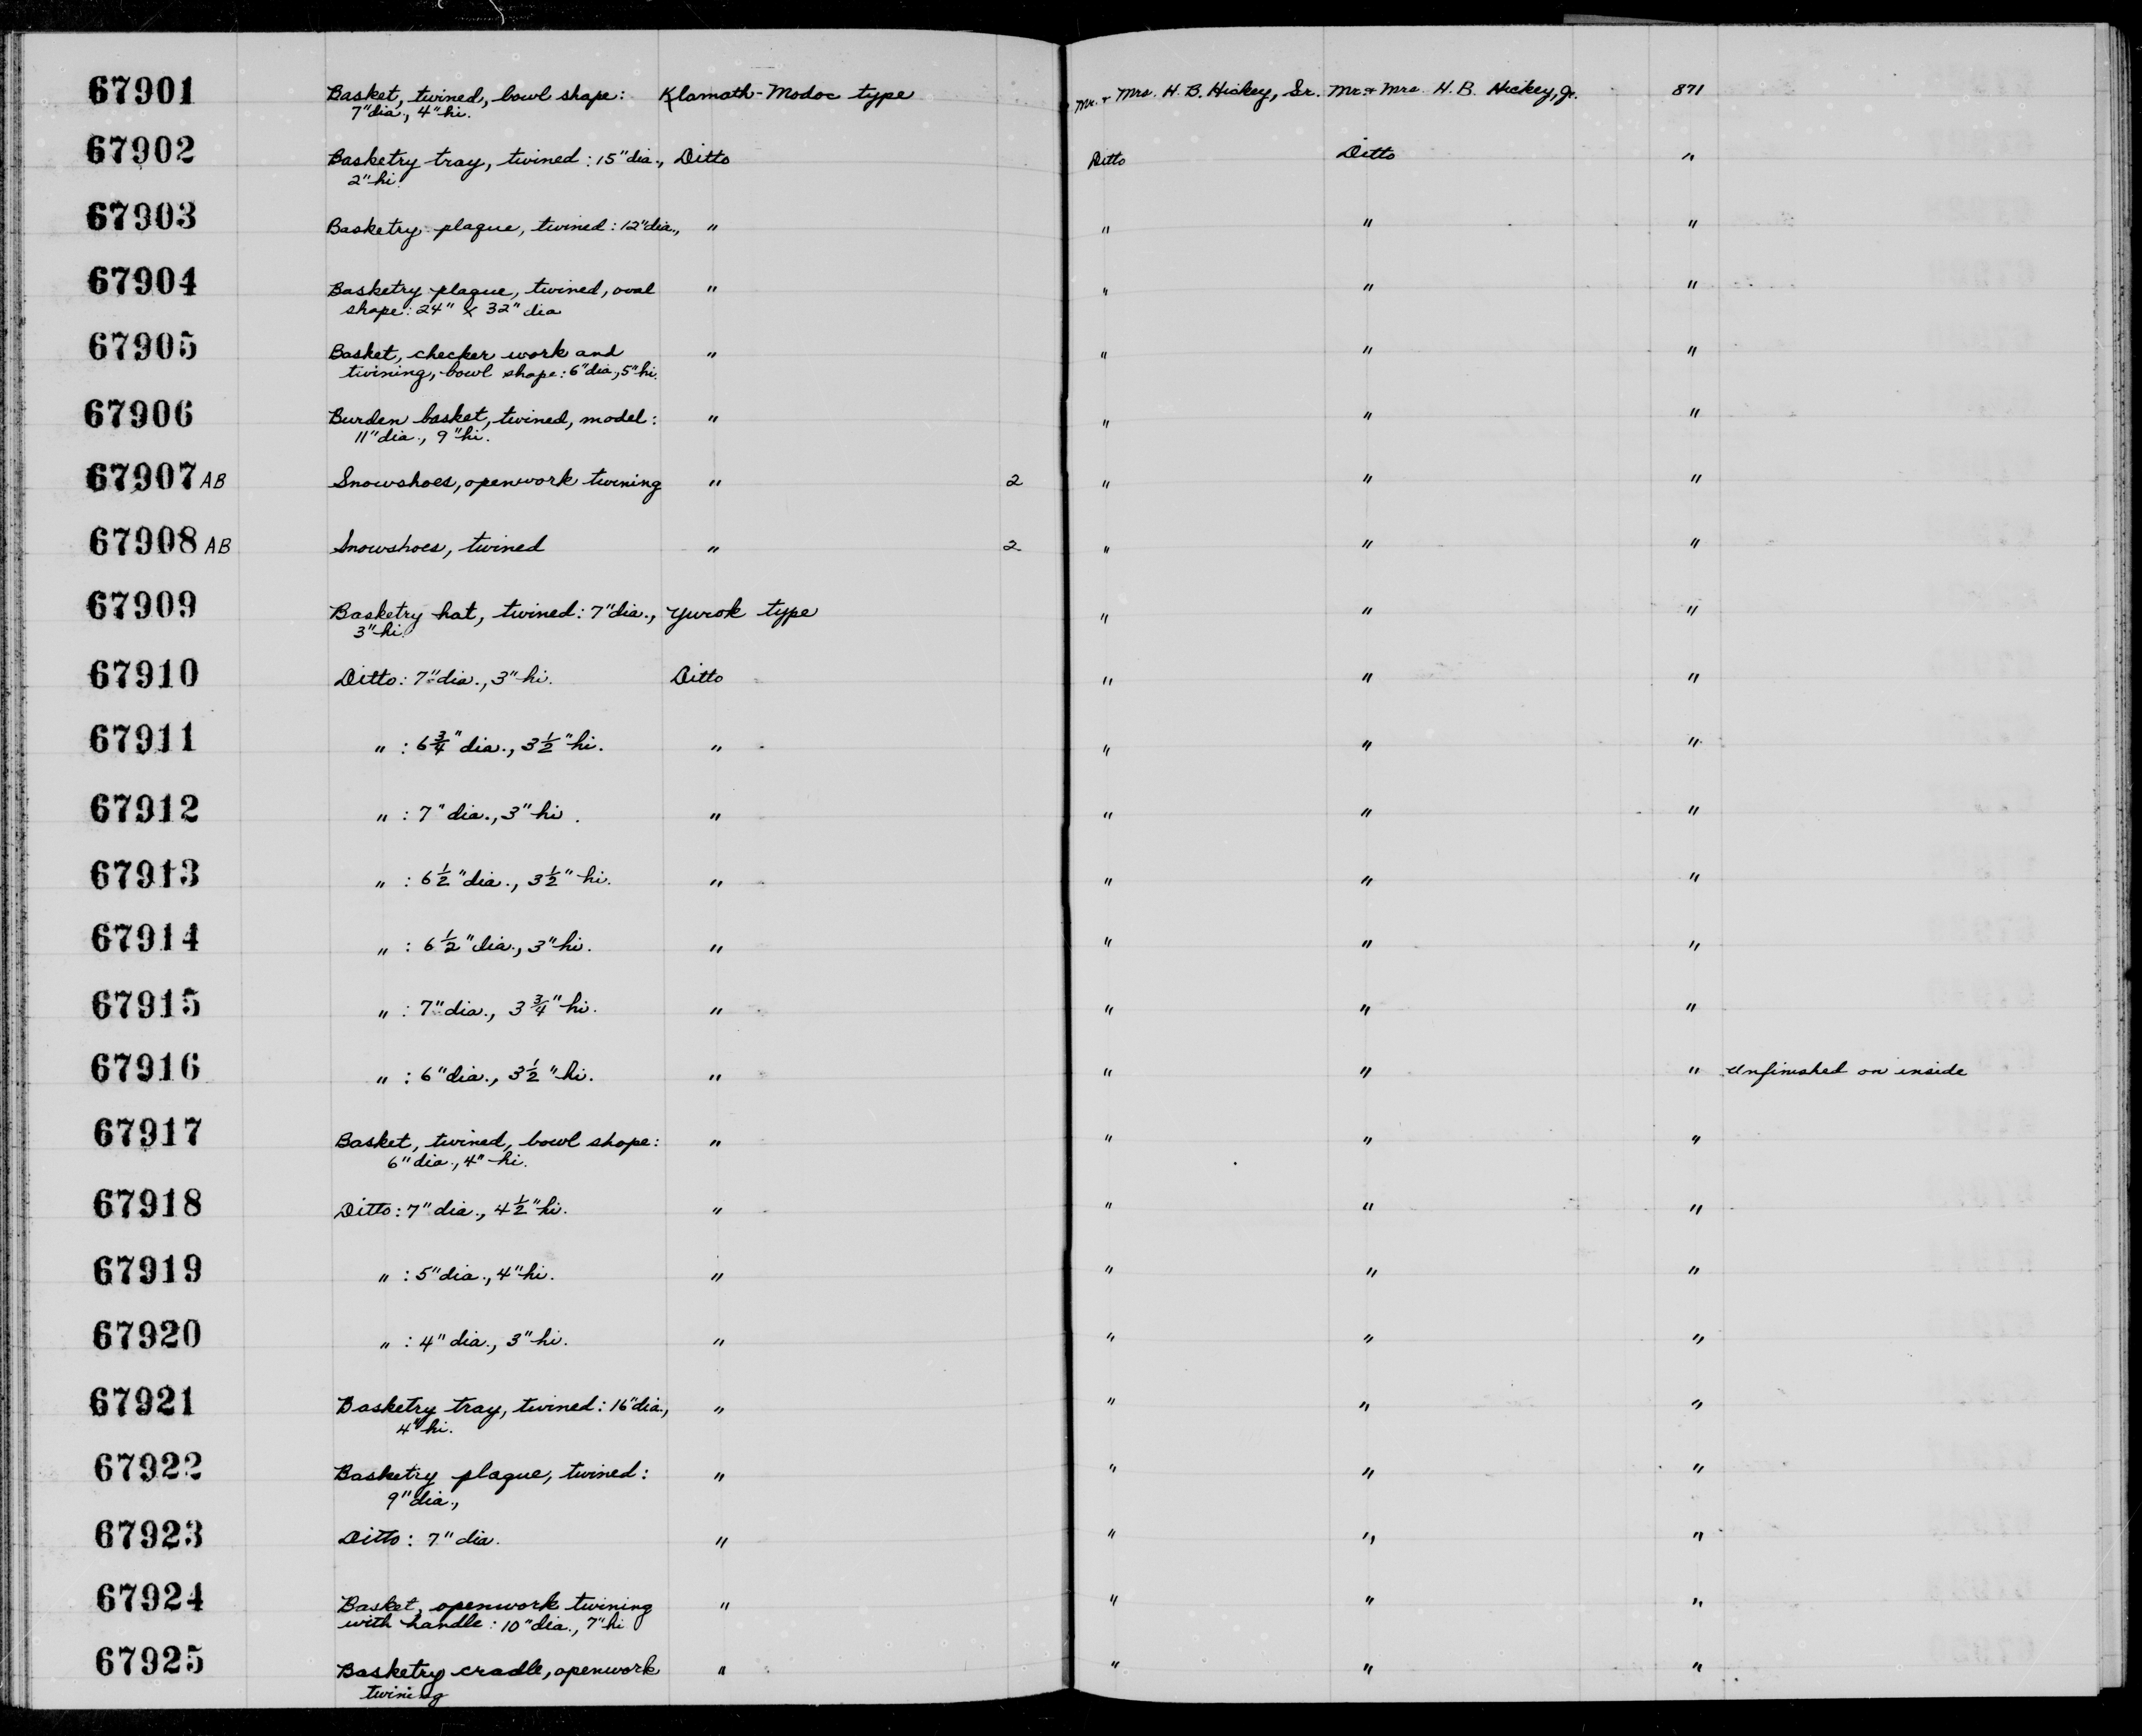 67901 Basket, twined, bowl shape: Klamath-Modoc type Mr. + Mrs. H. B. Hickey, Sr. Mr. + Mrs. H. B. Hickey, Jr. 871
7" dia., 4" hi.
67902 Basketry tray, twined: 15" dia., Ditto Ditto Ditto "
2" hi.
67903 Basketry plaque, twined: 12" dia., " " " "
67904 Basketry plaque, twined, oval " " " "
shape: 24" x 32" dia
67905 Basket, checker work and " " " "
twining, bowl shape: 6" dia., 5" hi.
67906 Burden basket, twined, model: " " " "
11" dia., 9" hi.
67907 AB Snowshoes, openwork twining " 2 " " "
67908 AB Snowshoes, twined " 2 " " "
67909 Basketry hat, twined: 7" dia., Yurok type " " "
3" hi.
67910 Ditto: 7" dia., 3" hi. Ditto " " "
67911 " : 6 3/4" dia., 3 1/2" hi. " " " "
67912 " : 7" dia., 3" hi. " " " "
67913 " : 6 1/2" dia., 3 1/2" hi. " " " "
67914 " : 6 1/2" dia., 3" hi. " " " "
67915 " : 7" dia., 3 3/4" hi. " " " "
67916 " : 6" dia., 3 1/2" hi. " " " " Unfinished on inside
67917 Basket, twined, bowl shape: " " " "
6" dia., 4" hi.
67918 Ditto: 7" dia., 4 1/2" hi. " " " "
67919 " : 5" dia., 4" hi. " " " "
67920 " : 4" dia., 3" hi. " " " "
67921 Basketry tray, twined: 16" dia., " " " "
4" hi.
67922 Basketry plaque, twined: " " " "
9" dia.,
67923 Ditto: 7" dia. " " " "
67924 Basket, openwork twining " " " "
with handle: 10" dia., 7" hi
67925 Basketry cradle, openwork " " " "
twining